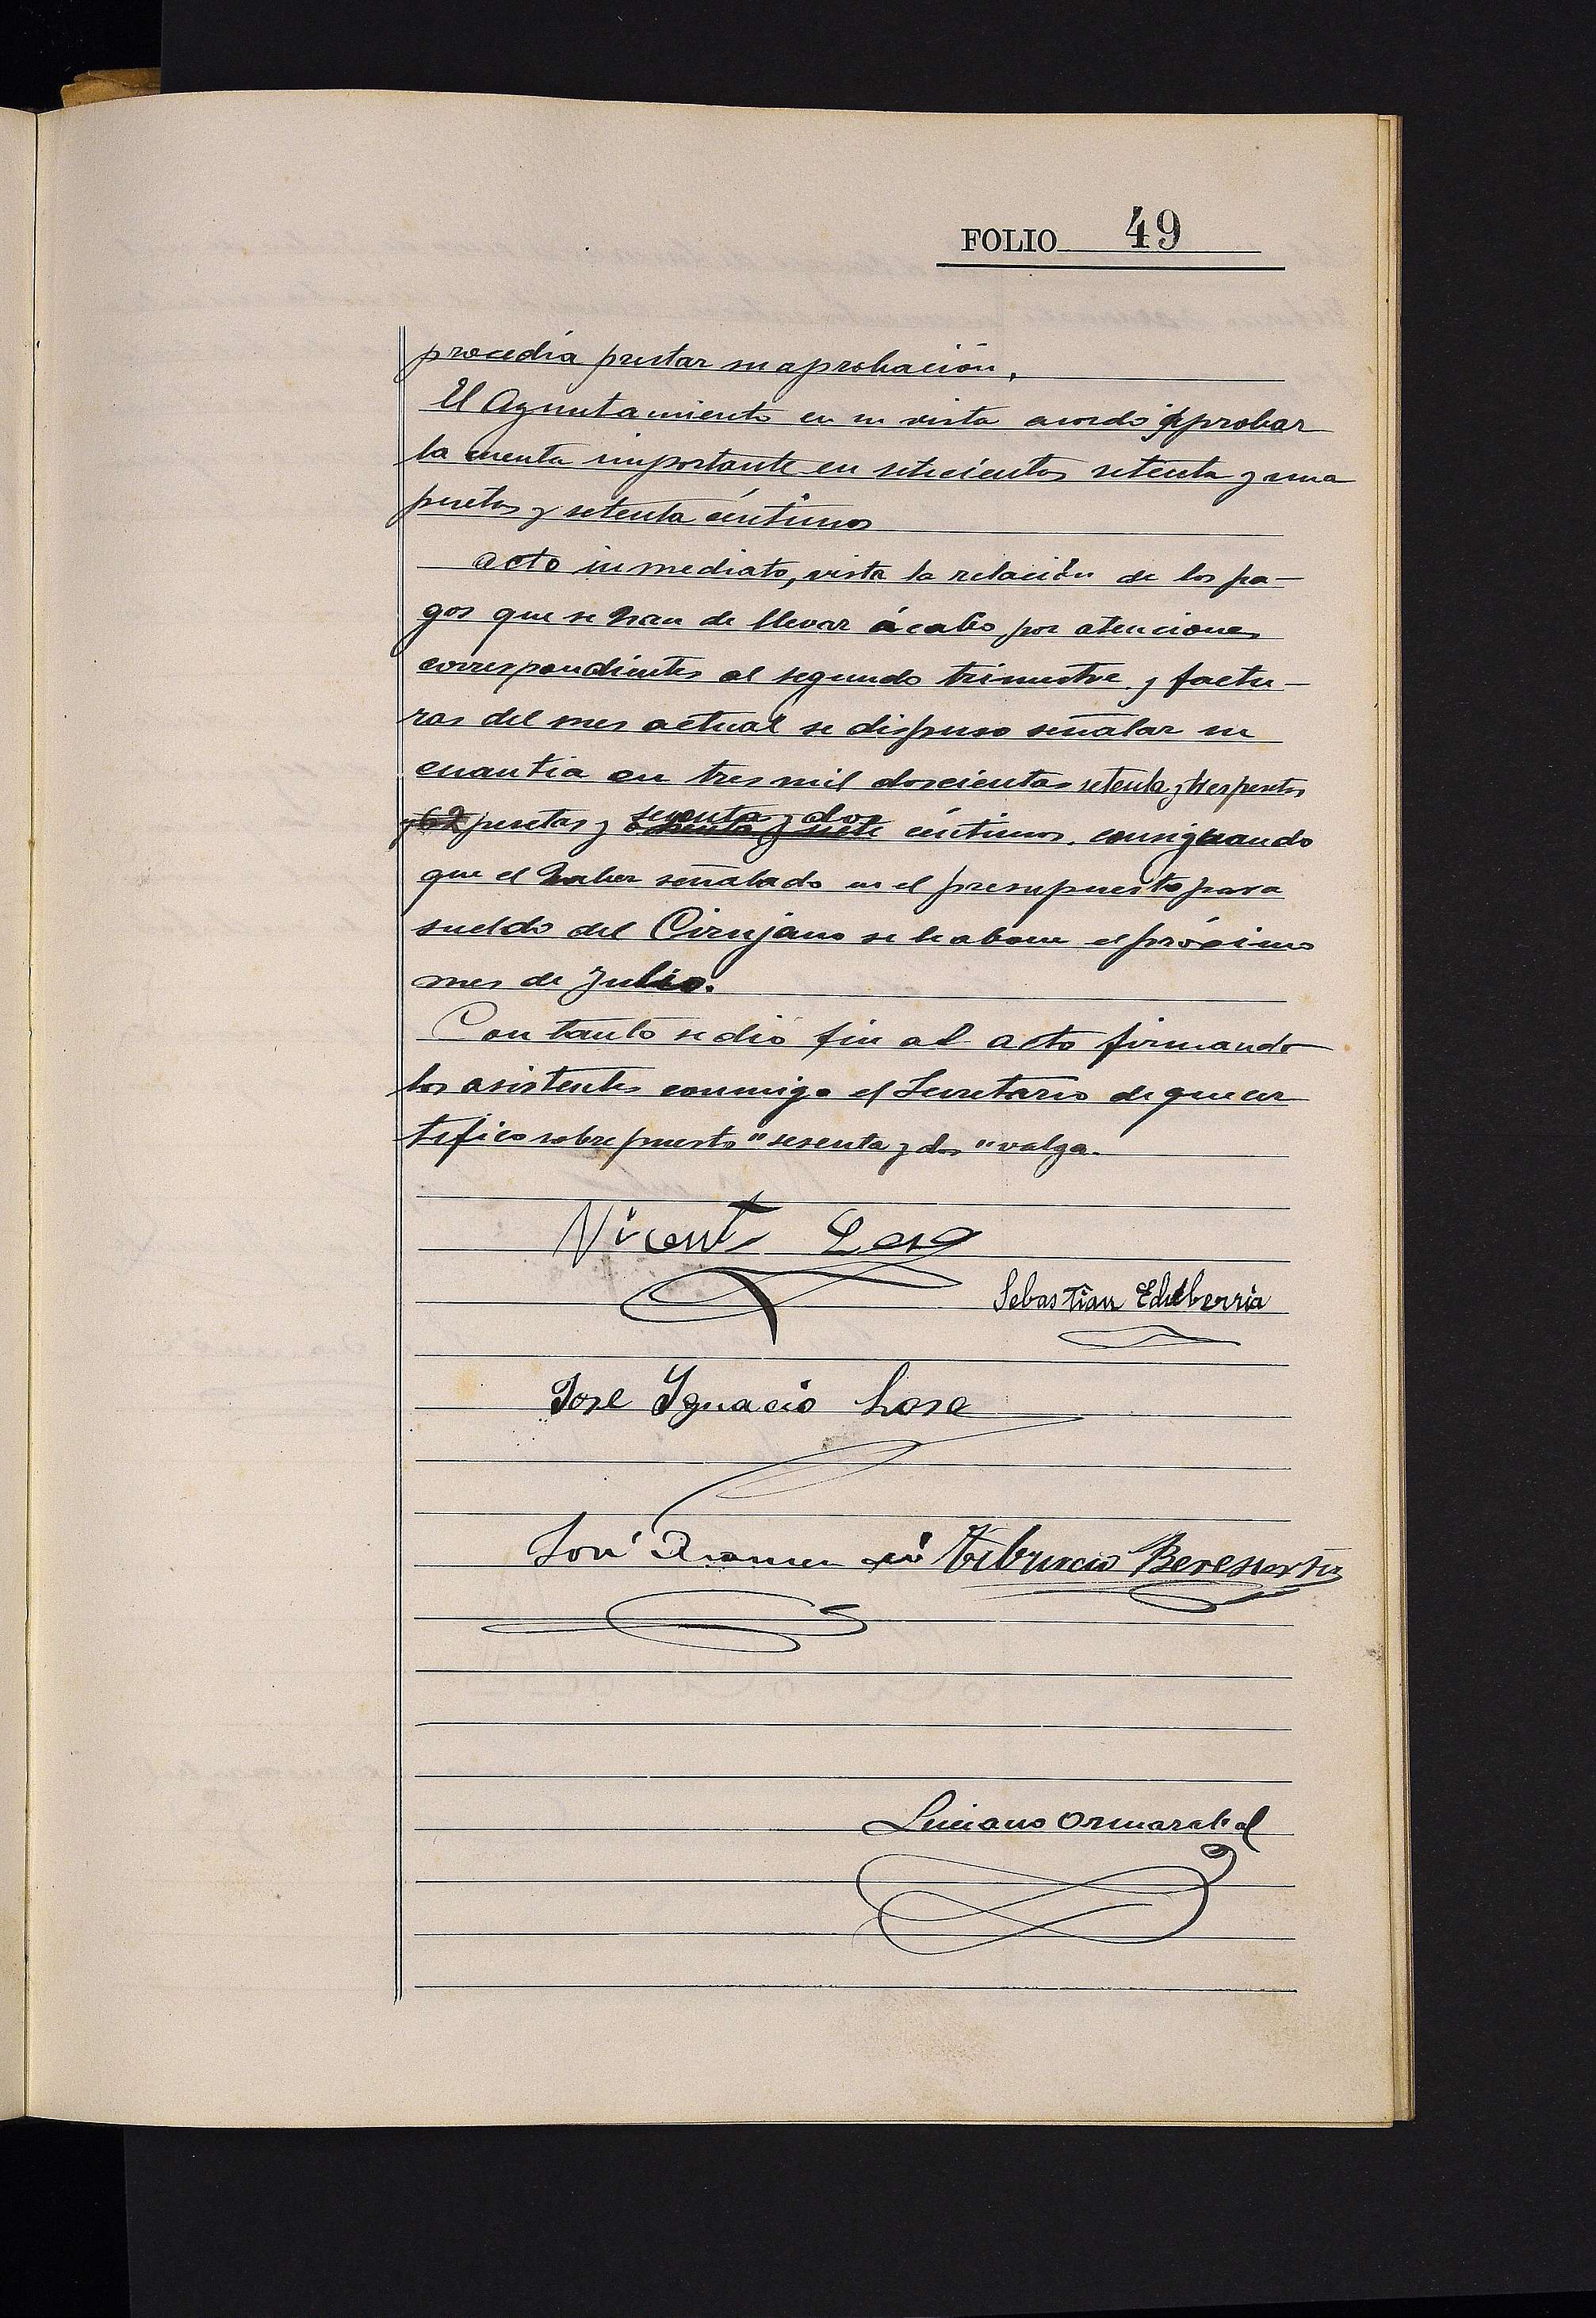 FOLIO 49
procedía prestar su aprobación,
El Ayuntamiento en su vista acordó aprobar
la cuenta importante en setecientas setenta y una
pesetas y setenta céntimos
acto inmediato, vista la relación de los pa-
gos que se han de llevar á cabo por atenciones
correspondientes al segundo trimestre y factu-
ras del mes actual se dispuso señalar su
cuantia en tres mil doscientas setenta y tres pesetas
sesenta y dos
y 62 pesetas y siete céntimos. consignando
que el haber señalado en el presupuesto para
sueldo del Cirujano se le abone el próximo
mes de Julio.
Con tanto se dió fin al acto firmando
los asistentes conmigo el Secretario de que cer
tifico sobrepuesto "sesenta y dos" valga.
Vicente Lasa
Sebastian Echeberria
José Ygnacio Lasa
José Ramon
Tiburcio Beresiartu
Luciano Ormazabal